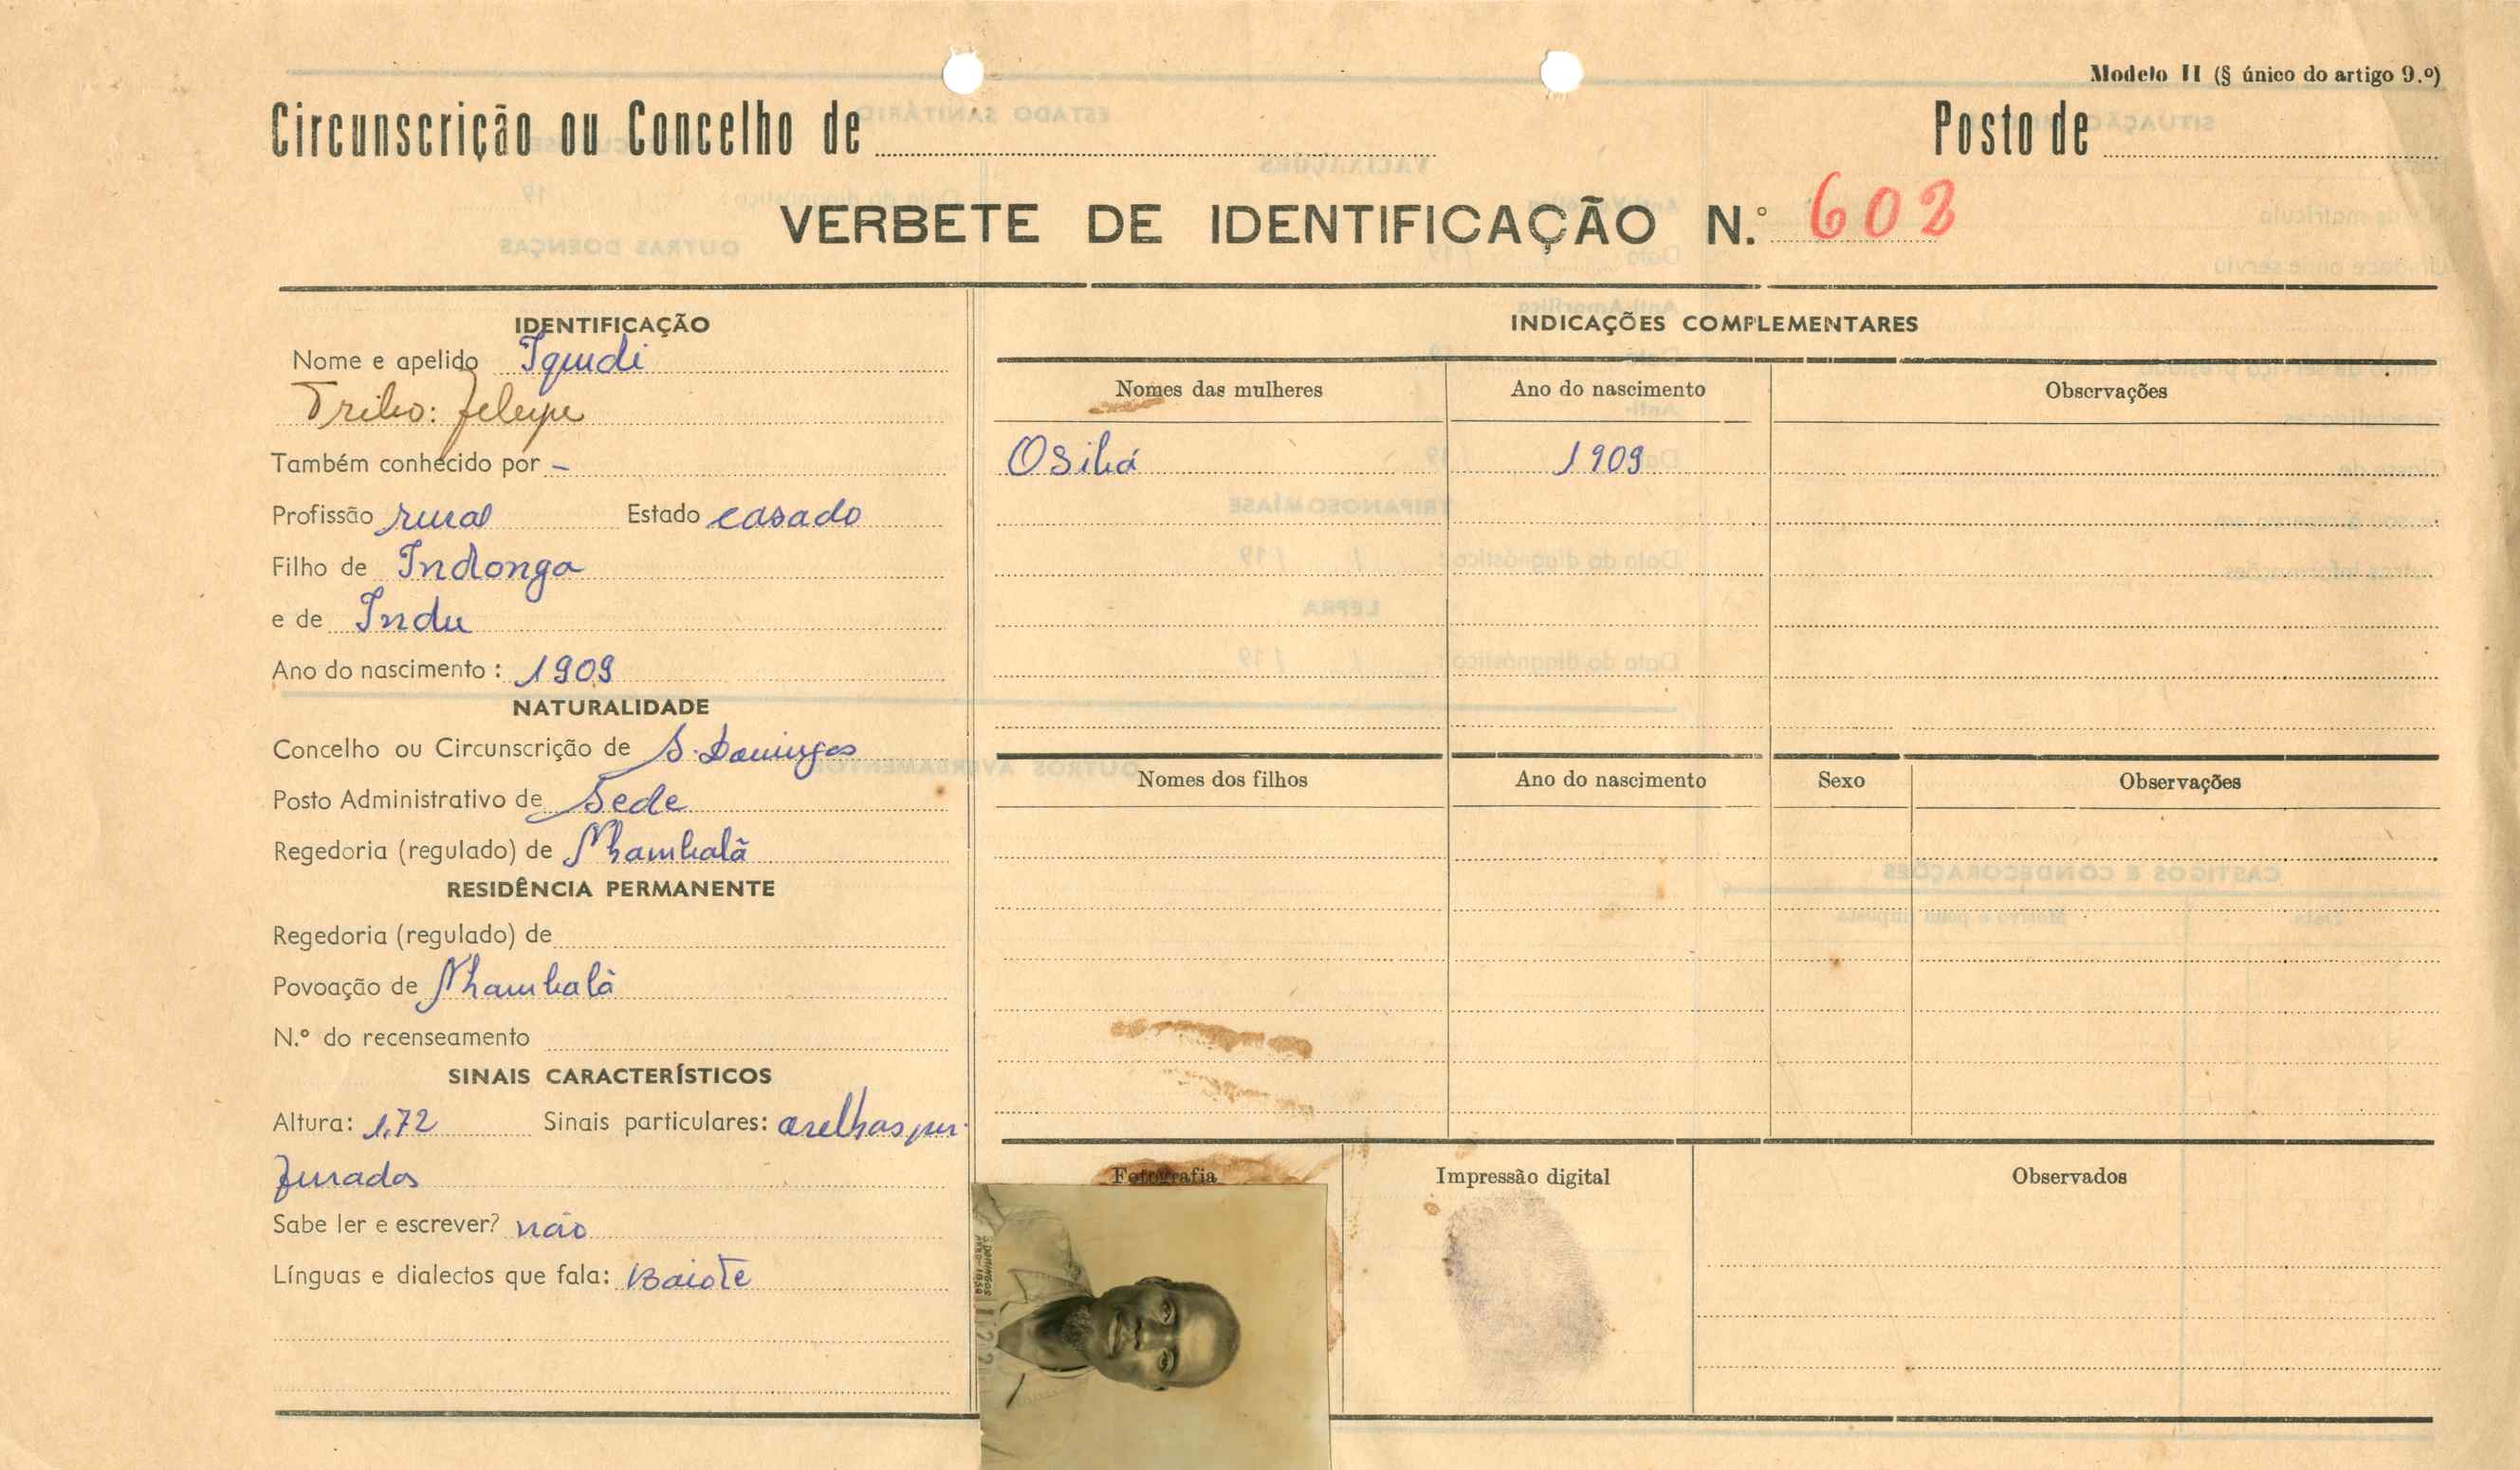 Modelo II (§ único do artigo 9.º)
Circunscrição ou Concelho de
Posto de
VERBETE DE IDENTIFICAÇÃO N.º 602
IDENTIFICAÇÃO
Nome e apelido Iquidi
Tribo: Felupe
Também conhecido por -
Profissão rural Estado casado
Filho de Indonga
e de Indu
Ano do nascimento: 1909
NATURALIDADE
Concelho ou Circunscrição de S. Domingos
Posto Administrativo de Sede
Regedoria (regulado) de Nhambalã
RESIDÊNCIA PERMANENTE
Regedoria (regulado) de
Povoação de Nhambalã
N.º do recenseamento
SINAIS CARACTERÍSTICOS
Altura: 1,72 Sinais particulares: orelhas per-
furados
Sabe ler e escrever? não
Línguas e dialectos que fala: Baiote
INDICAÇÕES COMPLEMENTARES
Nomes das mulheres Ano do nascimento Observações
Osibá 1909
Nomes dos filhos Ano do nascimento Sexo Observações
Fotografia Impressão digital Observados